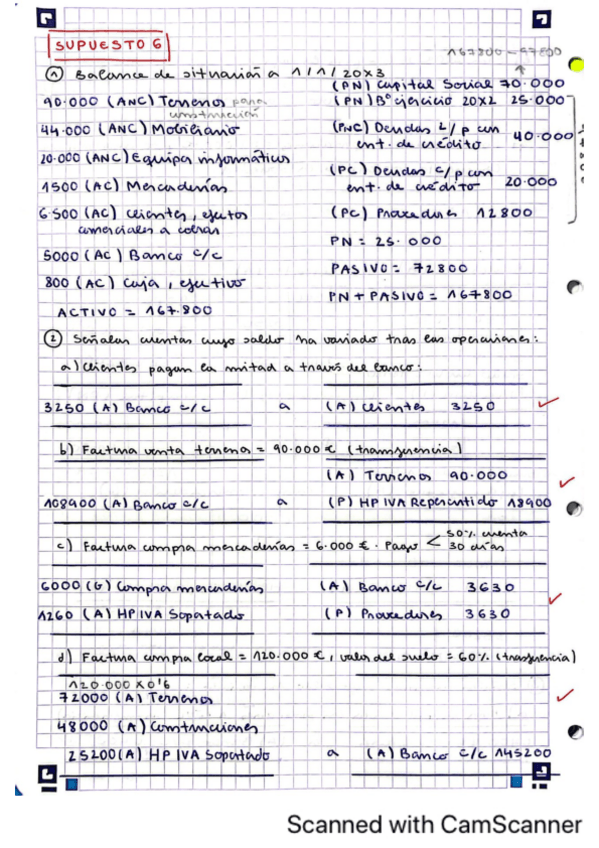 SUPUESTO 6
167800 - 97800
① Balance de situación a 1/1/20X3
(PN) Capital Social 70.000
90.000 (ANC) Terrenos para construcción
(PN) Bº ejercicio 20X2 25.000
44.000 (ANC) Mobiliario
(PNC) Deudas L/p con ent. de crédito 40.000
20.000 (ANC) Equipos informáticos
(PC) Deudas c/p con ent. de crédito 20.000
1500 (AC) Mercaderías
6.500 (AC) Clientes, efectos comerciales a cobrar
(PC) Proveedores 12800
5000 (AC) Banco c/c
PN = 25.000
800 (AC) Caja, efectivo
PASIVO = 72800
ACTIVO = 167.800
PN + PASIVO = 167800
② Señalan cuentas cuyo saldo ha variado tras las operaciones:
a) Clientes pagan la mitad a través del banco:
3250 (A) Banco c/c a (A) Clientes 3250
b) Factura venta terreno = 90.000 € (transferencia)
(A) Terrenos 90.000
108900 (A) Banco c/c a (P) HP IVA Repercutido 18900
c) Factura compra mercaderías = 6.000 €. Pago < 50% cuenta
30 días
6000 (G) Compra mercaderías (A) Banco c/c 3630
1260 (A) HP IVA Soportado (P) Proveedores 3630
d) Factura compra local = 120.000 €, valor del suelo = 60% (transferencia)
120.000 x 0'6
72000 (A) Terrenos
48000 (A) Construcciones
25200 (A) HP IVA Soportado a (A) Banco c/c 145200
Scanned with CamScanner